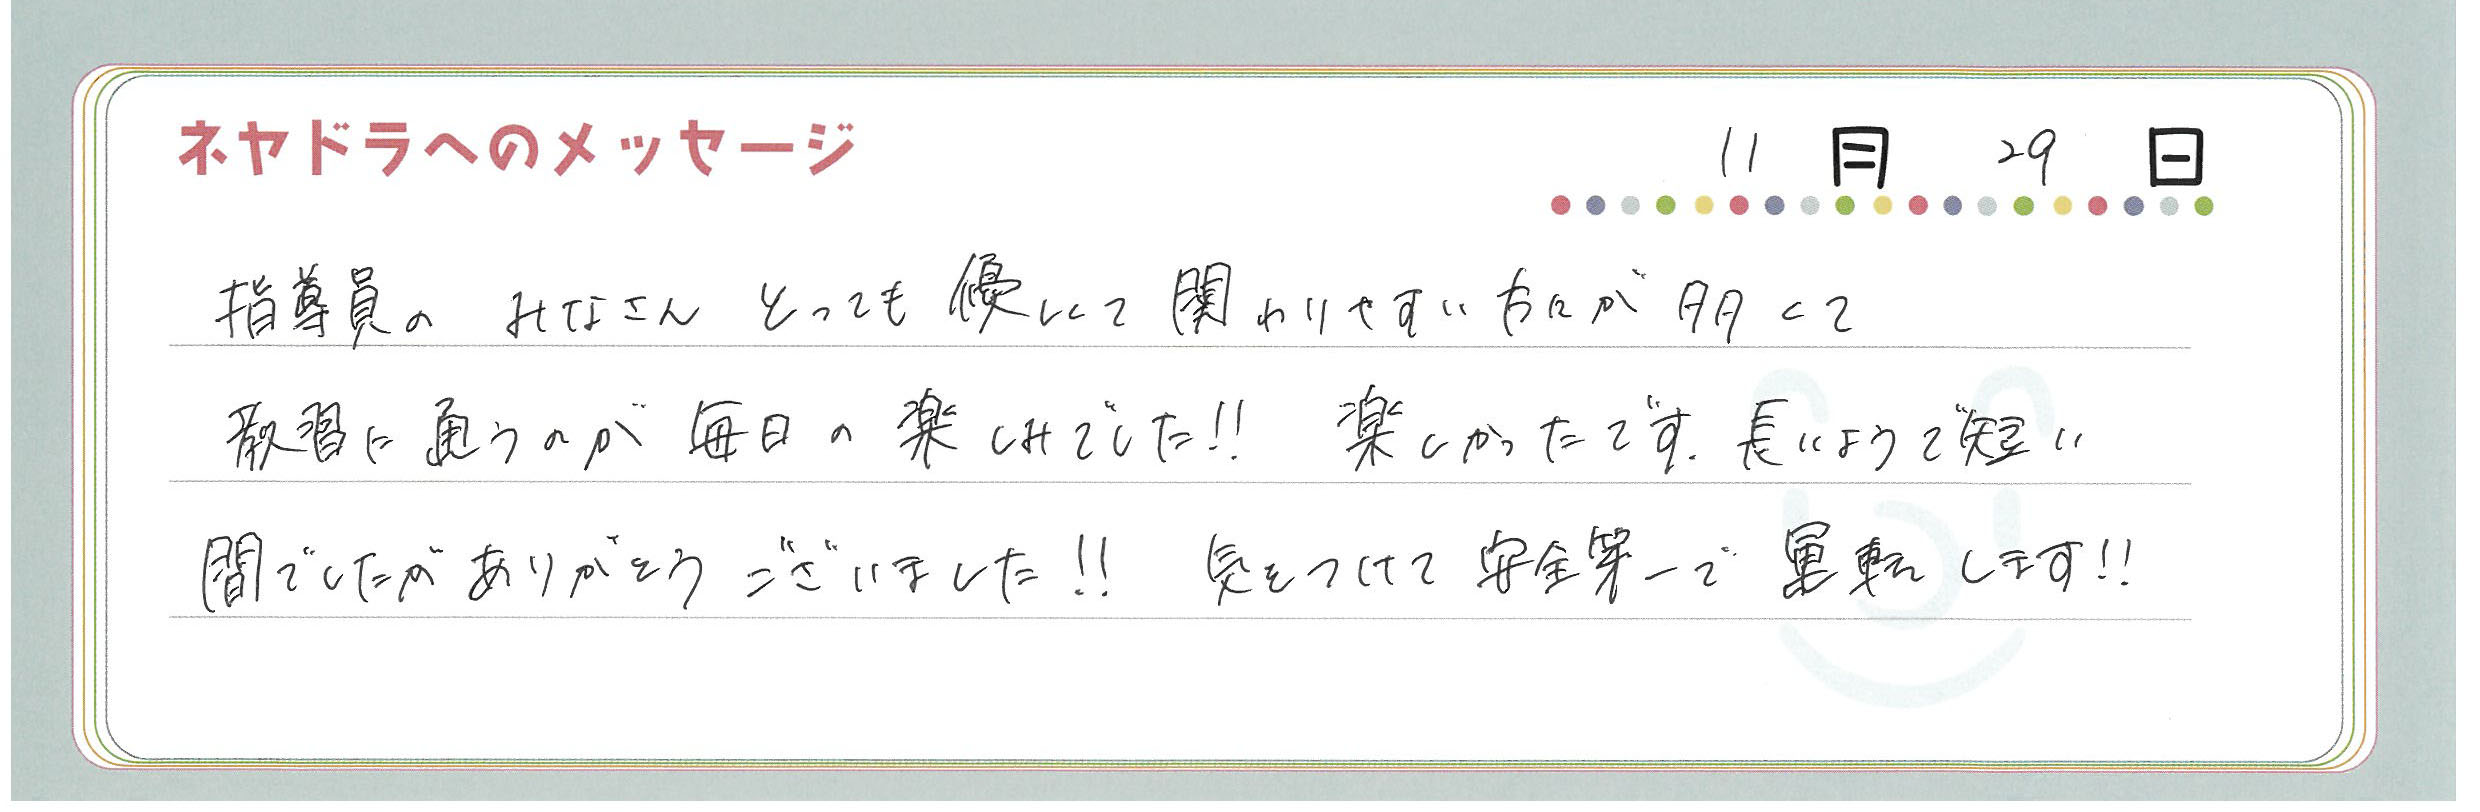 ネヤドラへのメッセージ
11月 29日
指導員の みなさん とっても 優しくて 関わりやすい 方にが 多くて
教習に 通うのが 毎日の 楽しみでした!! 楽しかったです. 長いようで短い
間でしたが ありがとう ございました!! 気をつけて 安全第一で 運転 します!!